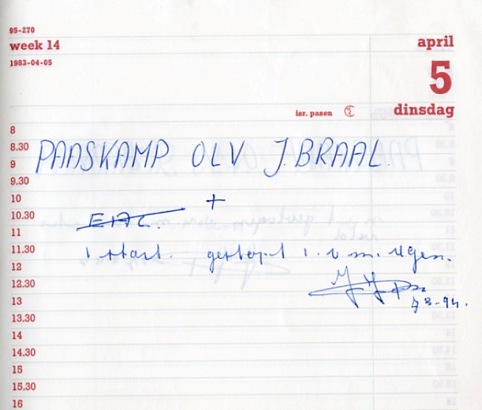 95-270
week 14
april
1983-04-05
5
isr. pasen
dinsdag
8
8.30
PAASKAMP OLV J.BRAAL
9
9.30
10
+
10.30
11
1 start. gestopt i.v.m. regen.
11.30
12
12.30
13
13.30
14
14.30
15
15.30
16